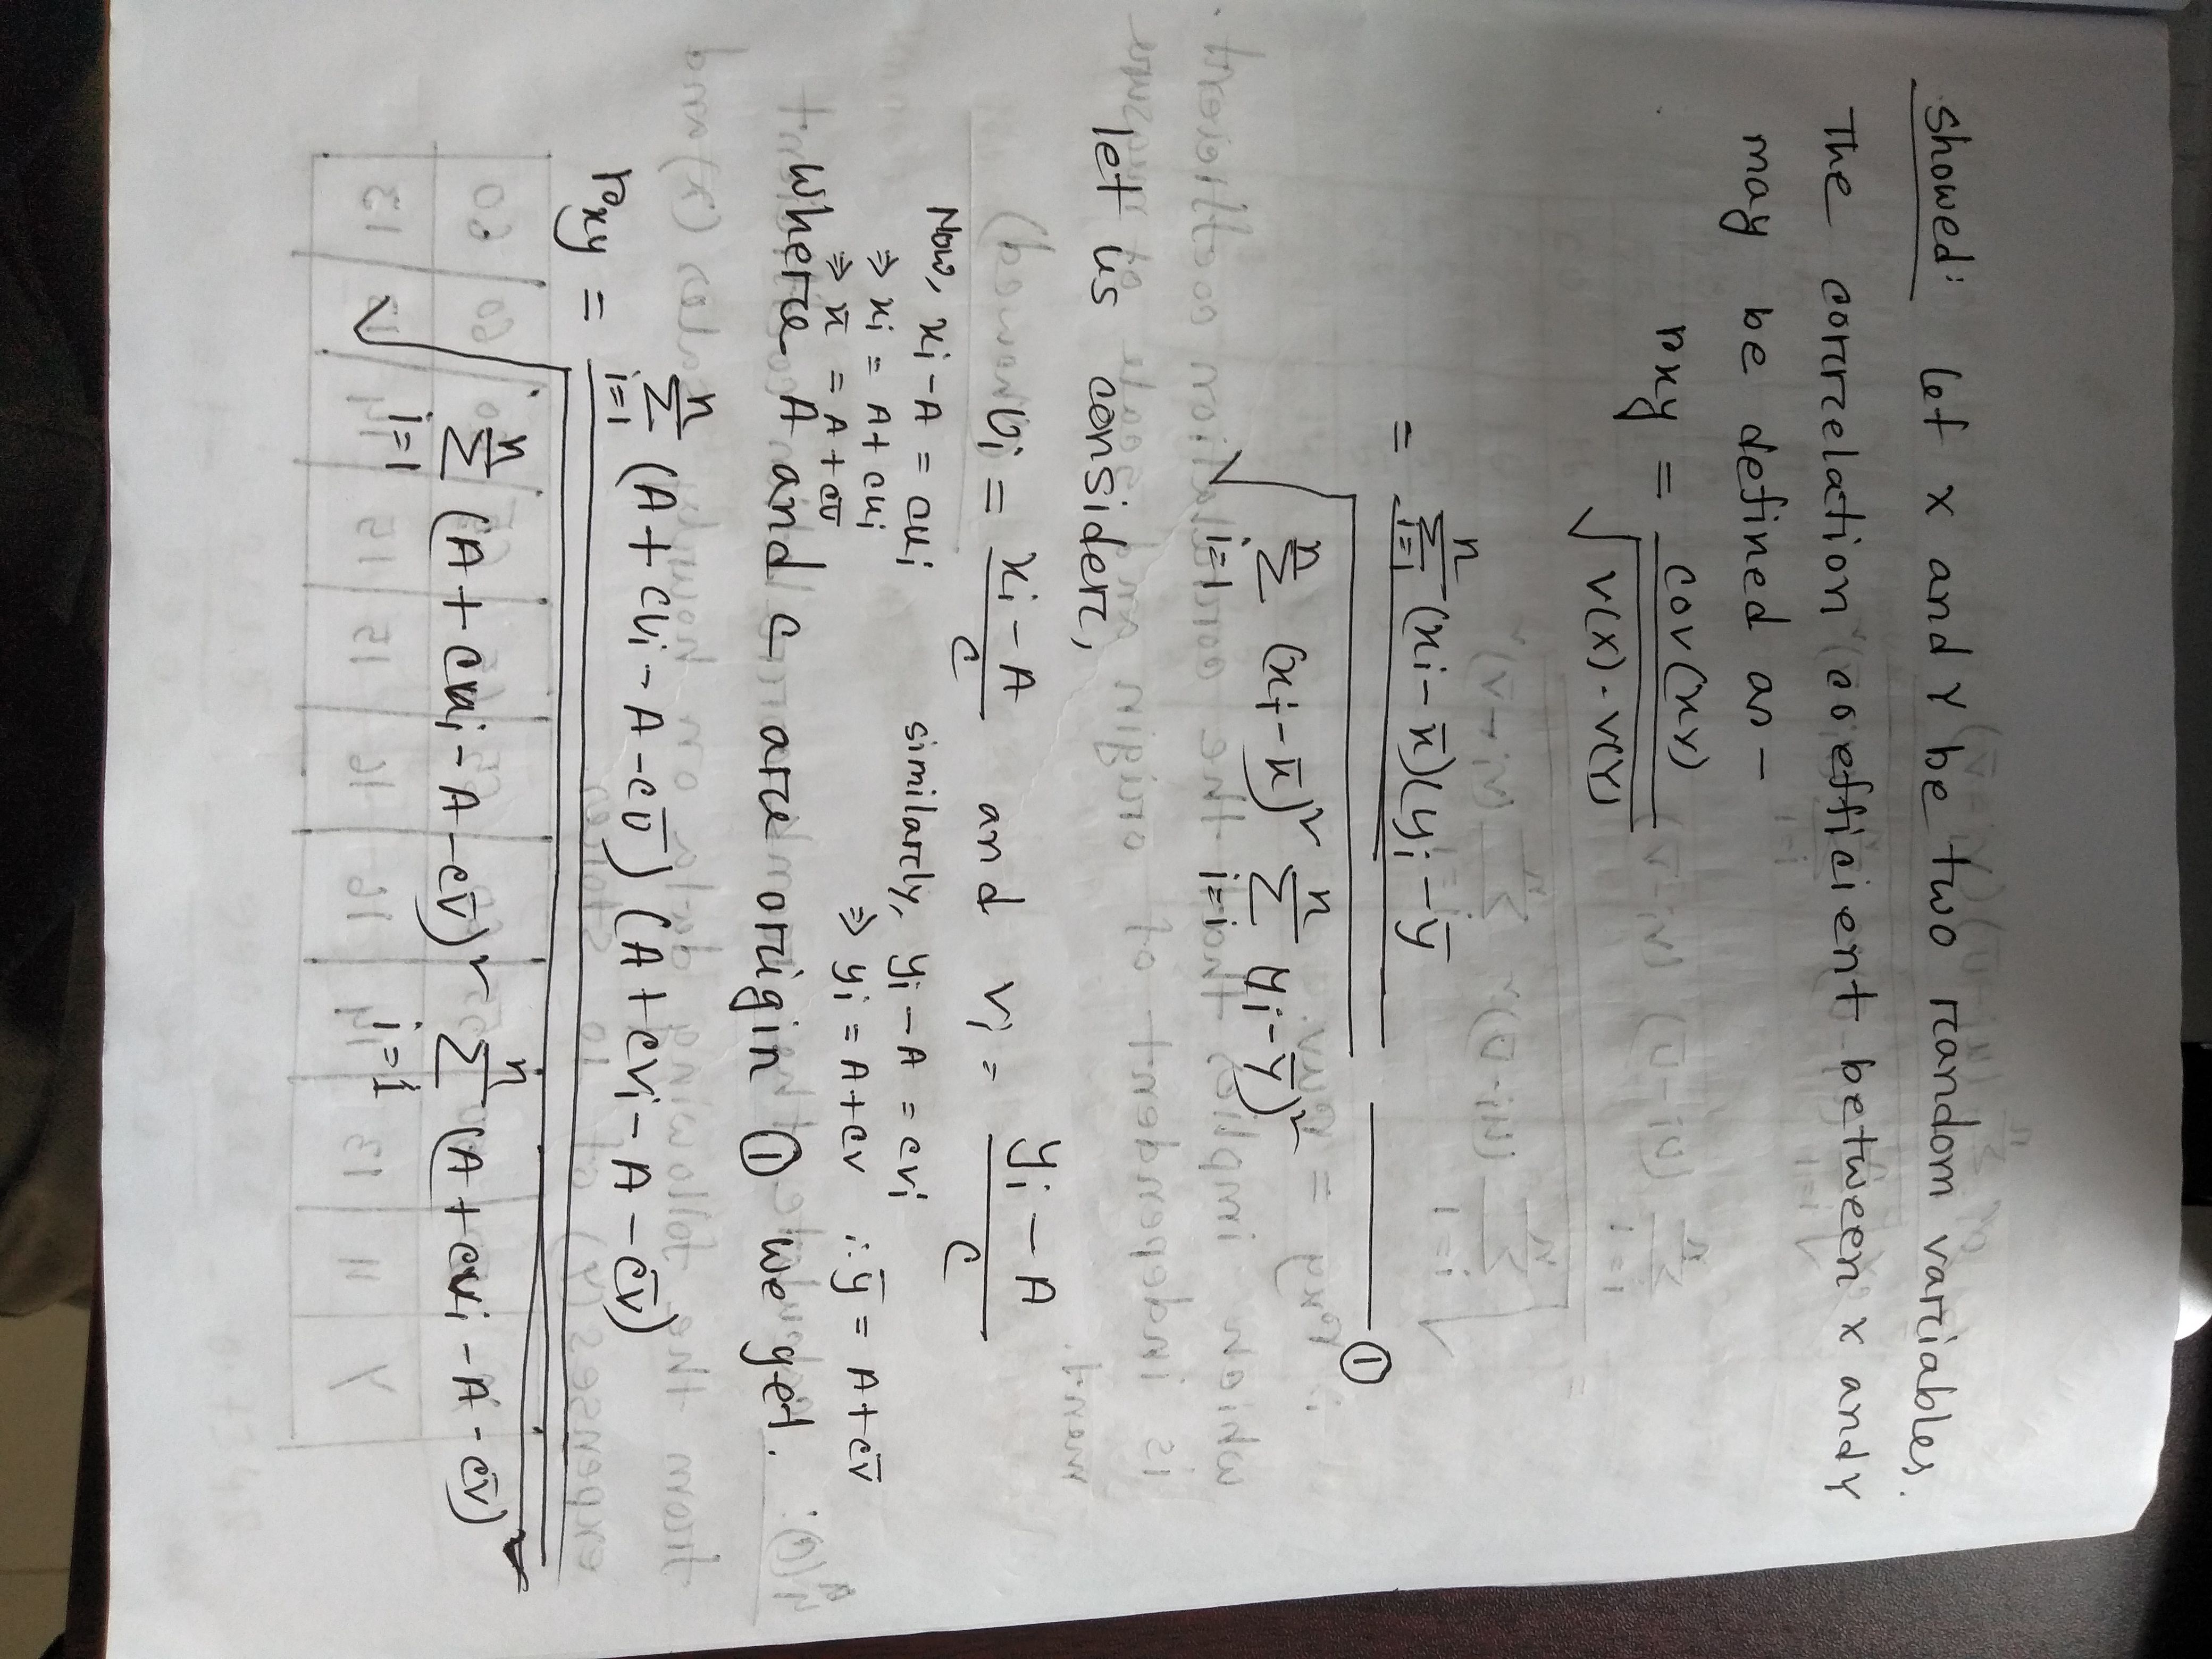 Showed: let X and Y be two random variables.
The correlation coefficient between X and Y
may be defined as -
rxy = cov(xy) / √(V(X) · V(Y))
= Σ(i=1 to n) (xi - x̄)(yi - ȳ / √(Σ(i=1 to n) (xi - x̄)² Σ(i=1 to n) yi - ȳ)²) ——— ①
let us consider,
ui = (xi - A)/c and vi = (yi - A)/c
Now, xi - A = cui similarly, yi - A = cvi
⇒ xi = A + cui ⇒ yi = A + cv ∴ ȳ = A + cv̄
⇒ x̄ = A + cū
Where A and c are origin ① we get.
rxy = Σ(i=1 to n) (A + cui - A - cū) (A + cvi - A - cv̄) / √(Σ(i=1 to n) (A + cui - A - cv̄)² Σ(i=1 to n) (A + cvi - A - cv̄)²)